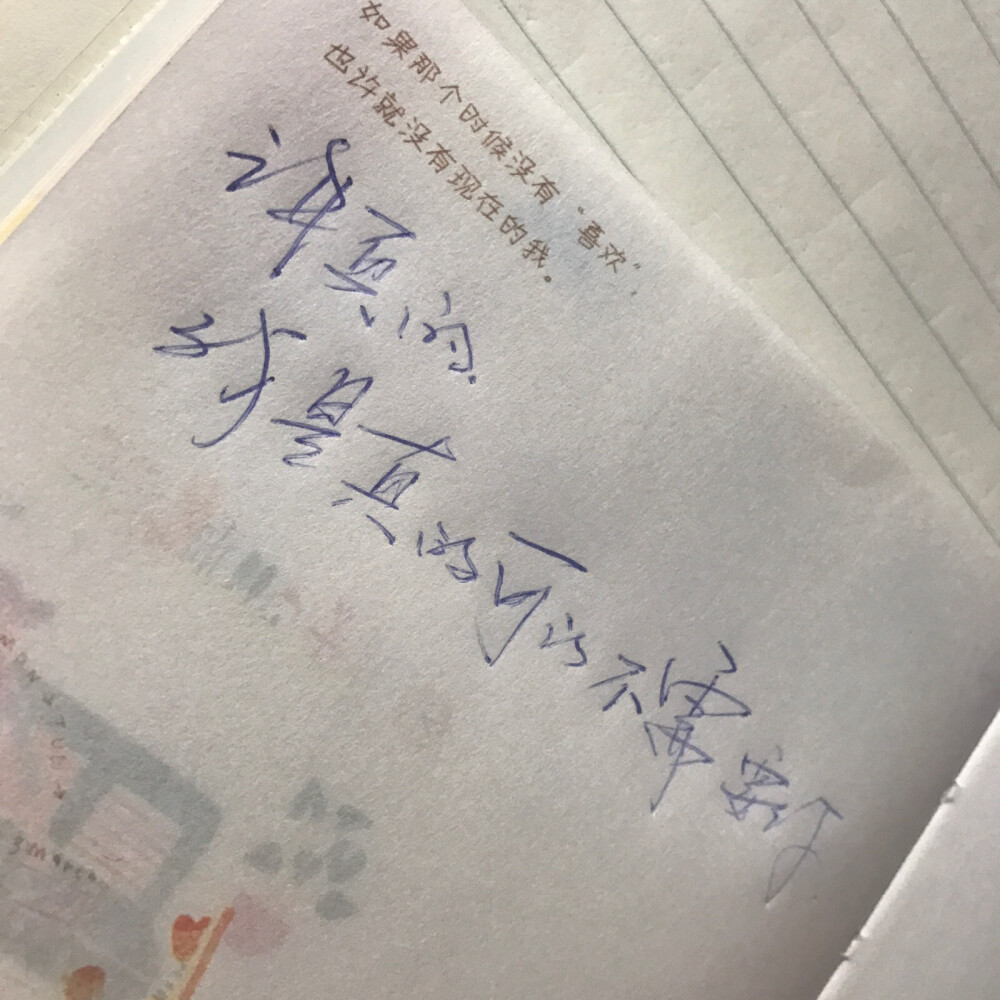 如果那个时候没有“喜欢”,
也许就没有现在的我。
讲真的.
我是真的可以不需要你